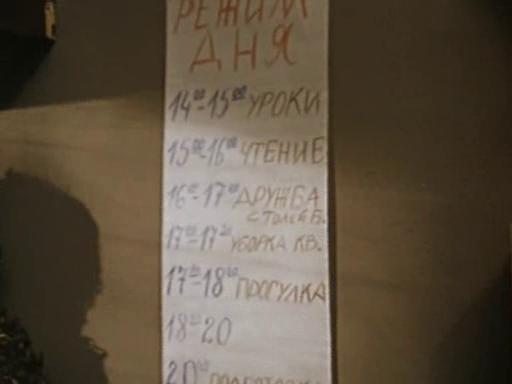 РЕЖИМ
ДНЯ
14⁰⁰-15⁰⁰ УРОКИ
15⁰⁰-16⁰⁰ ЧТЕНИЕ
16⁰⁰-17⁰⁰ ДРУЖБА
С ТОЛЕЙ Б.
17⁰⁰-17³⁰ УБОРКА КВ.
17³⁰-18⁰⁰ ПРОГУЛКА
18⁰⁰-20
20⁰⁰